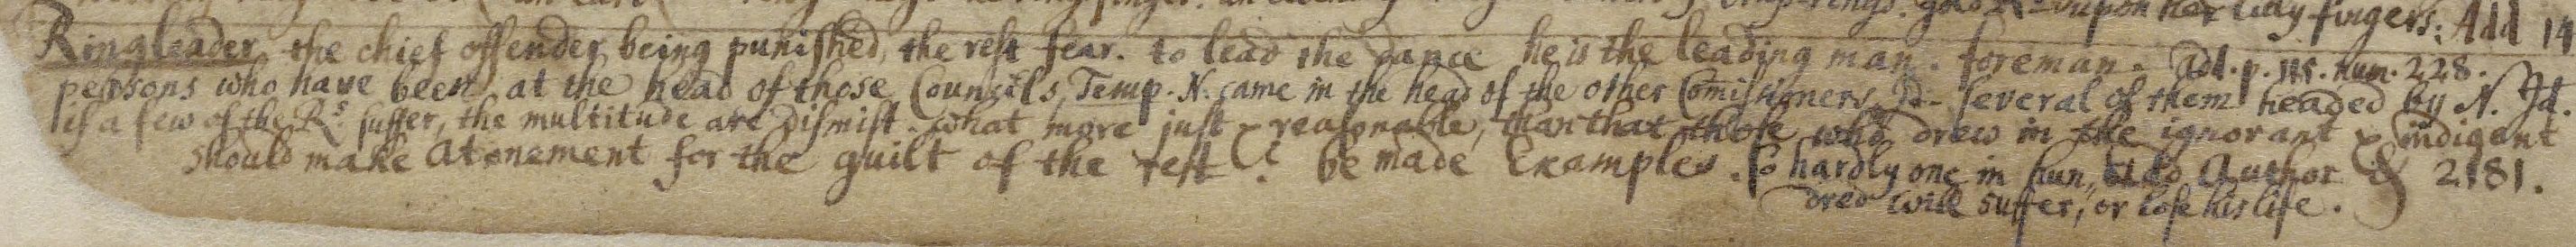 upon her lady-fingers: Add 14
Ringleader, the chief offender being punished, the rest fear. to lead the dance he is the leading man. foreman. Add. p. 115. num. 228.
persons who have been at the head of those Councils, Temp. N. came in the head of the other Comissioners, Id- several of them headed by N. Id.
if a few of the Rs. suffer, the multitude are dismist. what more just & reasonable, than that those who drew in the ignorant & indigent
should make atonement for the guilt of the rest &? be made Examples. So hardly one in hun,, Add Author & 2181.
dred will suffer, or lose his life.